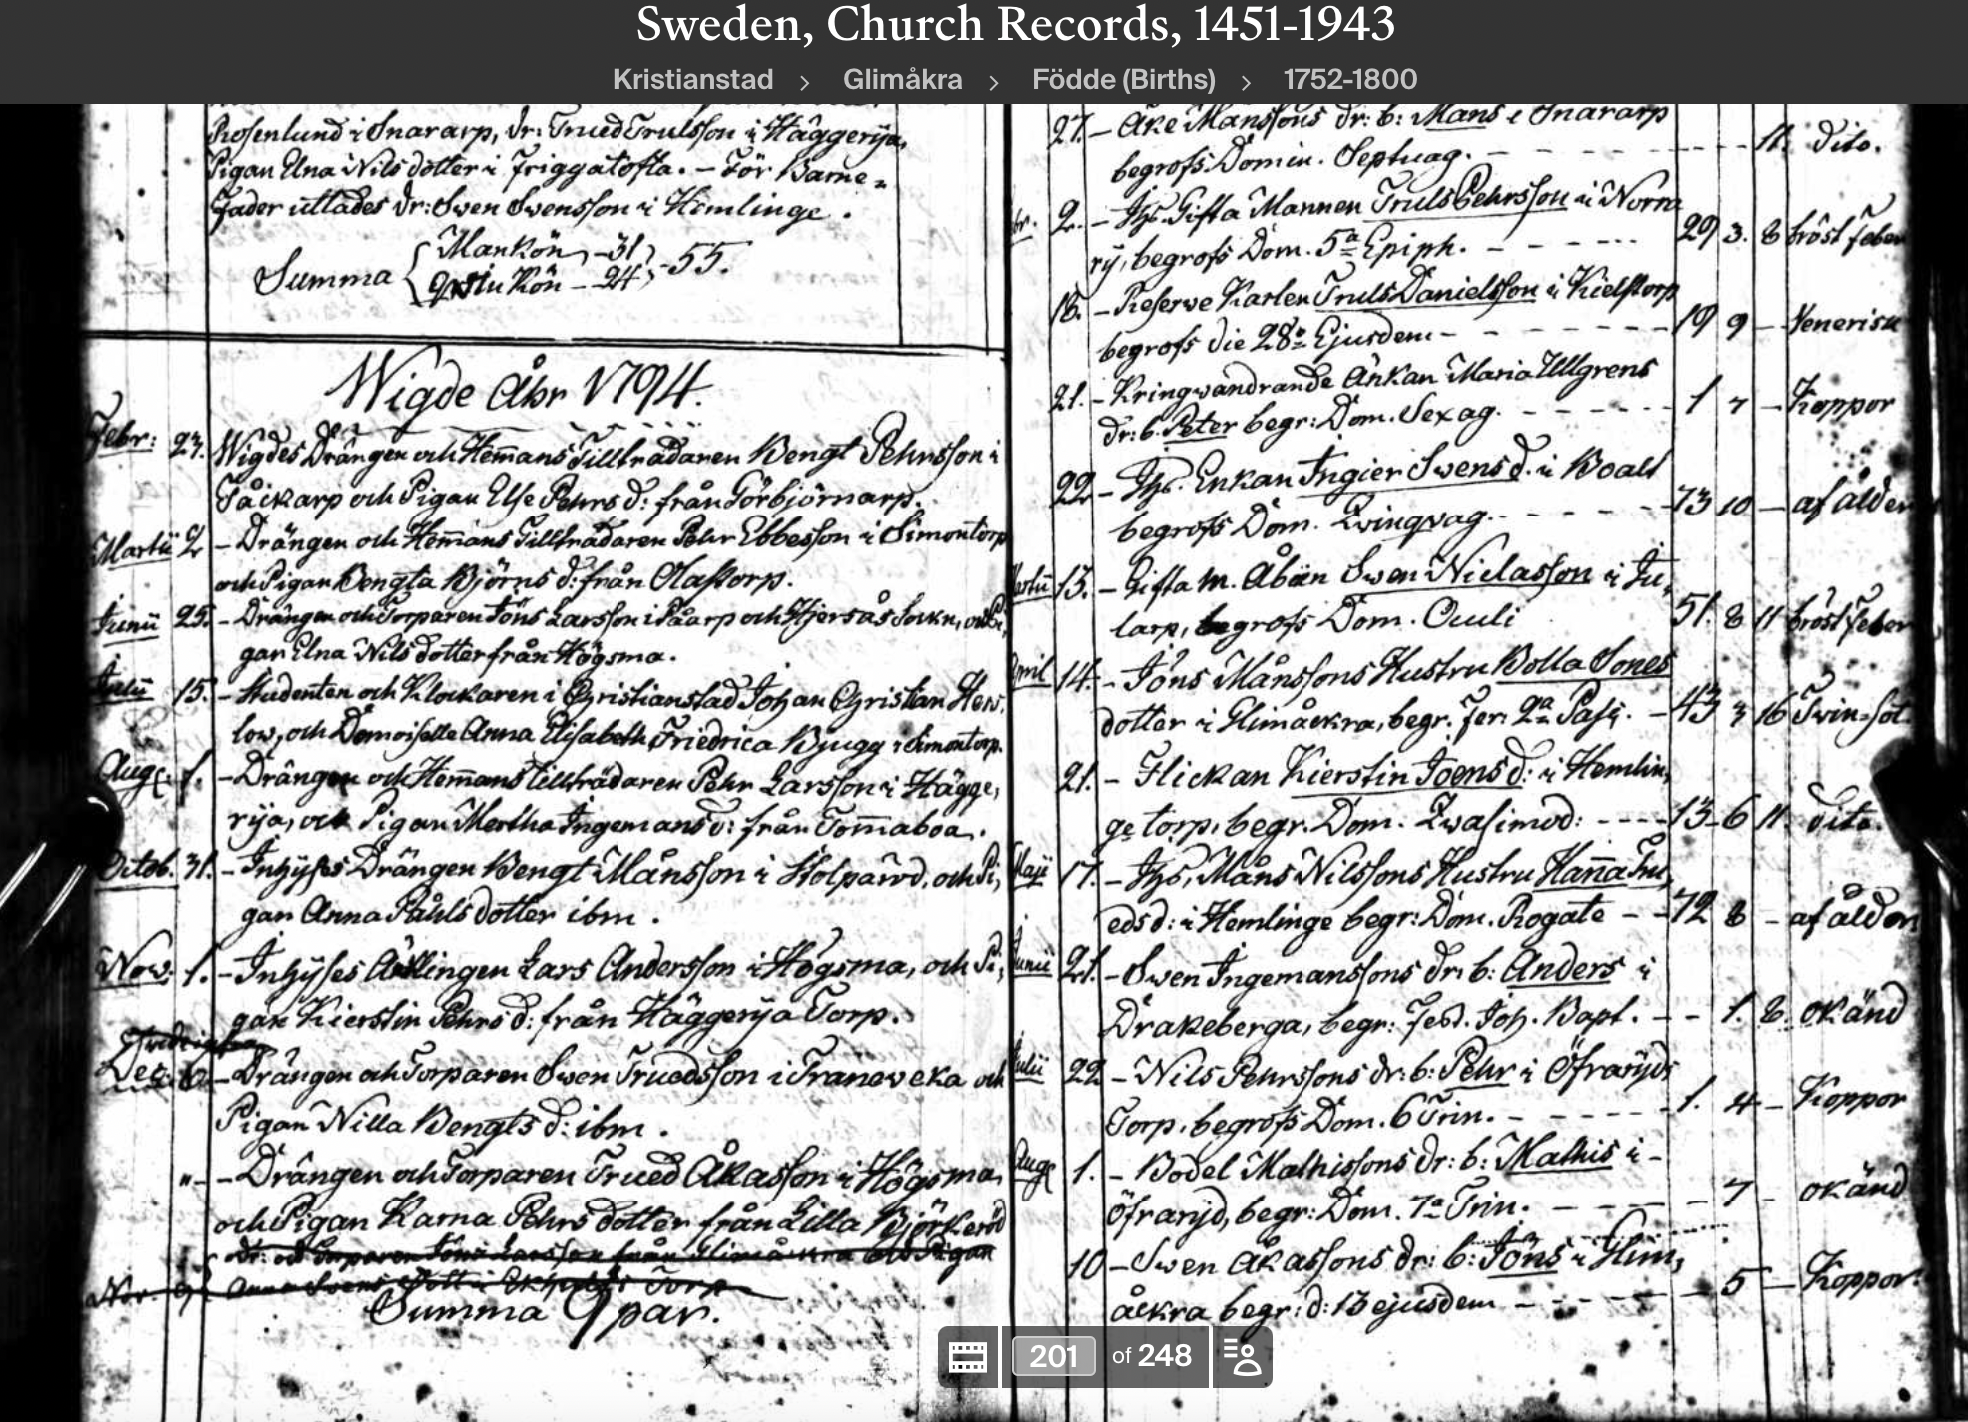 Sweden, Church Records, 1451-1943
Kristianstad > Glimåkra > Födde (Births) > 1752-1800
Rosenlund i Snararp, dr: Trued Trulsson i Häggerija,
Pigan Elna Nils dotter i Friggatofta. – För Barne=
fader utlades dr: Swen Swensson i Hemlinge.
Mankön – 31
Summa 55.
Qwinkön – 24
Wigde Åhr 1794.
Febr: 23. Wigdes Drängen och Hemans Tillträdaren Bengt Pehrsson i
Påickarp och Pigan Else Pehrs d: från Görbjörnarp.
Martii 2 – Drängen och Hemans Tillträdaren Pehr Ebbesson i Simontorp
och Pigan Bengta Björns d: från Olastorp.
Junii 25. – Drängen och Torparen Jöns Larsson i Påarp och Hjersås Sockn, och Pi,
gan Elna Nils dotter från Högsma.
Julii 15. – Studenten och Klockaren i Christianstad Johan Christian Her,
low, och Demoiselle Anna Elisabeth Friedrica Bjugg i Simontorp.
Aug: 1. – Drängen och Hemans tillträdaren Pehr Larsson i Hägge,
rija, och Pigan Mertha Ingemans d: från Tomaboa.
Octob. 31. – Inhyses Drängen Bengt Månsson i Stolparöd, och Pi,
gan Anna Påhls dotter ibm.
Nov. 1. – Inhyses Lars Andersson i Högsma, och Pi,
gan Kierstin Pehrs d: från Häggerija Torp.
Dec: 6 – Drängen och Torparen Swen Truedsson i Traneveka och
Pigan Nilla Bengts d: ibm.
" – Drängen och Torparen Trued Åkasson i Högsma,
och Pigan Karna Pehrs dotter från Lilla Björkeröd
Dr: och Torparen Jöns Larsson från Glimåckra och Pigan
Nov 9 Anna Swens Dott i Torp
Summa 9 par.
27. – Åke Månssons dr: b: Måns i Snararp
begrofs Domin. Septuag. – – – 11. dito.
2. – Ihs. Gifta Mannen Truls Pehrsson i Norra
ry, begrofs Dom. 5a Epiph. – – – 29 3. 8 bröst feber
18. – Reserve Karlen Truls Danielsson i Kielstorp
begrofs die 28 Ejusdem – – – 19 9 – Venerisk
21. – Kringwandrande Änkan Maria Ullgrens
dr: b. Peter begr: Dom. Sexag. – – – 1 7 – Koppor
22. – Ihs. Enkan Ingier Swens d. i Boalt
begrofs Dom. Qvinqvag. – – – 73 10 – af ålder
Martii 13. – Gifta m. Åboen Swen Niclasson i Ju,
larp, begrofs Dom. Oculi 51. 8 11 bröst feber
April 14. – Jöns Månssons Hustru Bolla Jones
dotter i Glimåckra, begr. Fer: 2a Pasc. – 43 3 16 Twin=sot.
21. – Flickan Kierstin Joens d: i Hemlin,
ge torp, begr. Dom. Qvasimod: – – – 13 6 11. dito.
Maji 17. – Ihs, Måns Nilssons Hustru Hanna Tru,
eds d: i Hemlinge begr: Dom. Rogate – – 72 8 – af ålder
Junii 21. – Swen Ingemanssons dr: b: Anders i
Drakeberga, begr: Fest. Joh. Bapt. – – 1. 8. okänd
Julii 22 – Nils Pehrssons dr: b: Pehr i Öfraryds
Torp, begrofs Dom. 6 Trin. – – – 1. 4 – Koppor
Aug 1. – Bodel Mathissons dr: b: Mathis i –
Öfraryd, begr: Dom. 7a Trin. – – – 7 – okänd
10 – Swen Åkassons dr: b: Jöns i Glim,
åckra begr: d: 13 ejusdem – – – 5 – Koppor.
201 of 248